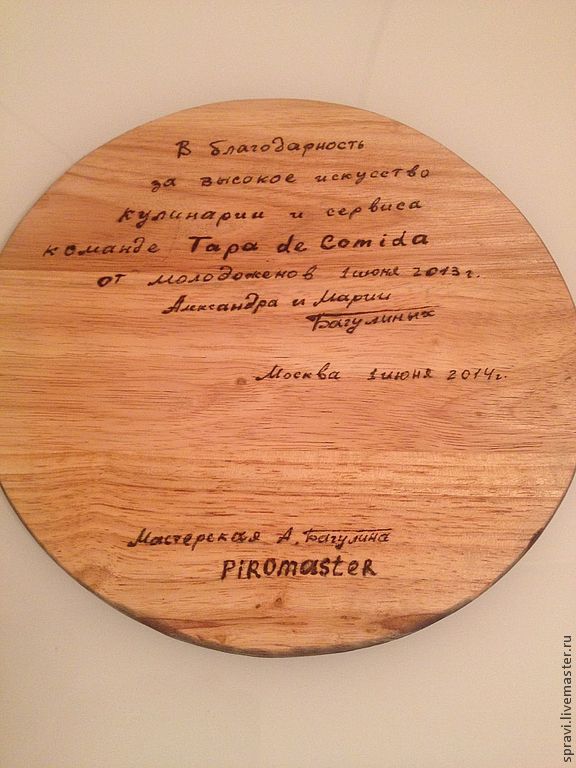 В благодарность
за высокое искусство
кулинарии и сервиса
команде Tapa de Comida
от молодоженов 1 июня 2013 г.
Александра и Марии
Багулиных
Москва 1 июня 2014 г.
Мастерская А. Багулина
PIROmasteR
spravi.livemaster.ru